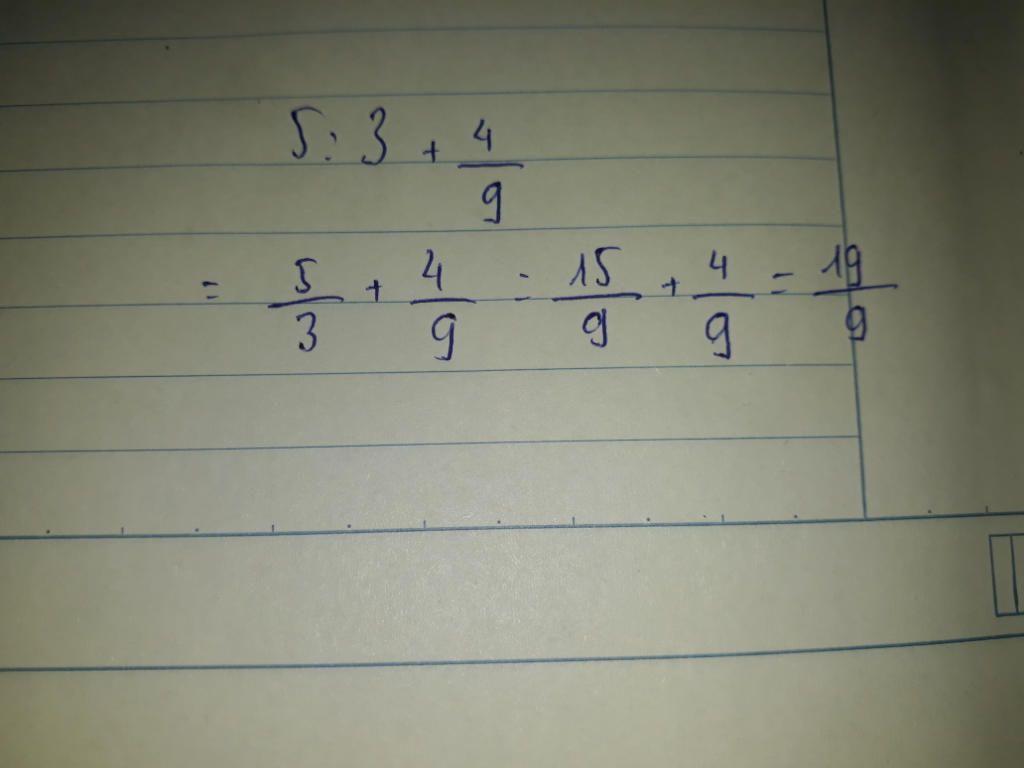 5 : 3 + 4/9
= 5/3 + 4/9 = 15/9 + 4/9 = 19/9